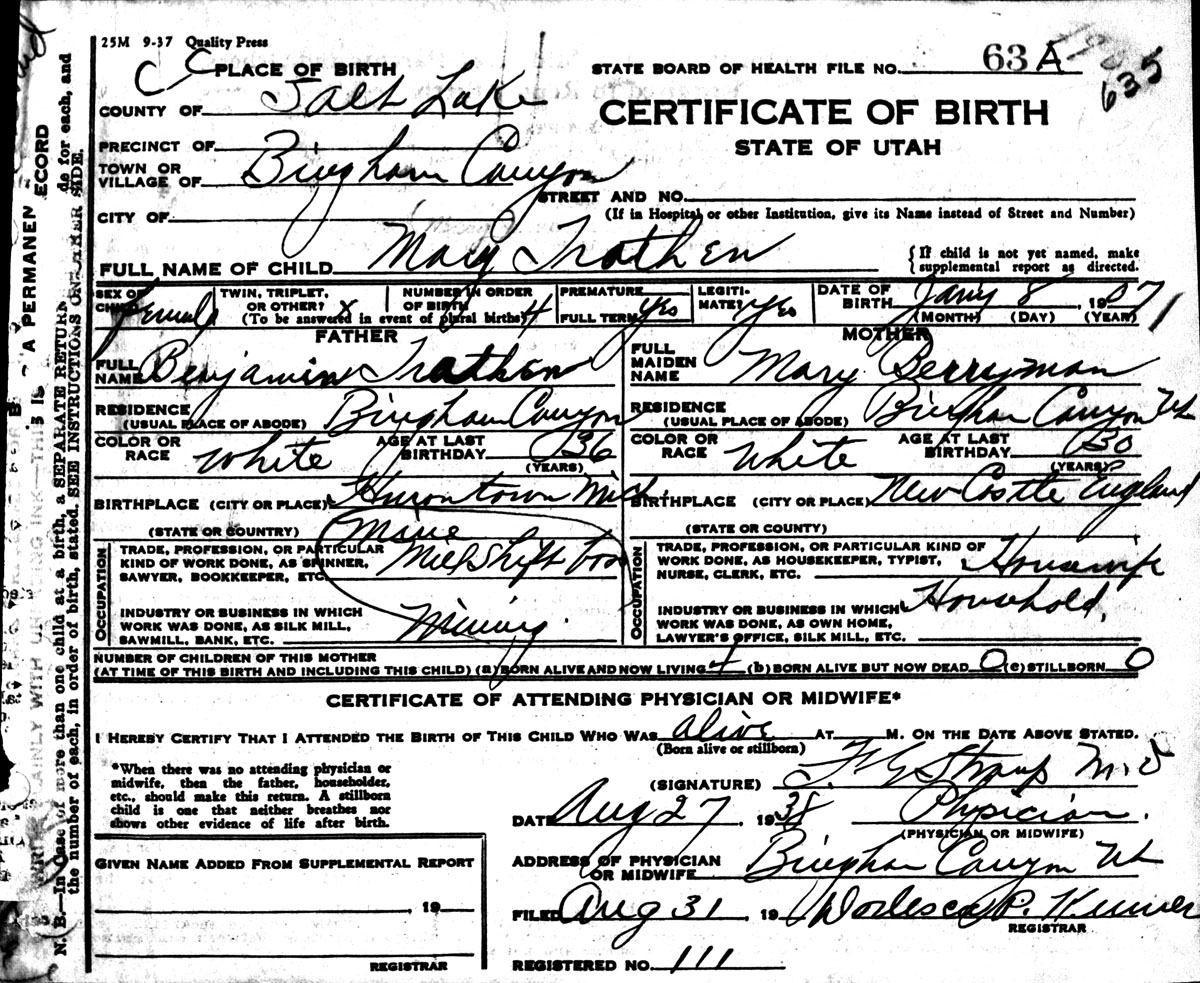 25M 9-37 Quality Press
C C PLACE OF BIRTH
STATE BOARD OF HEALTH FILE NO. 63 A
635
COUNTY OF Salt Lake
CERTIFICATE OF BIRTH
STATE OF UTAH
PRECINCT OF
TOWN OR VILLAGE OF Bingham Canyon
STREET AND NO.
CITY OF
(If in Hospital or other Institution, give its Name instead of Street and Number)
FULL NAME OF CHILD Mary Trathen
{If child is not yet named, make supplemental report as directed.
SEX OF CHILD Female
TWIN, TRIPLET, OR OTHER? x
NUMBER IN ORDER OF BIRTH 4
(To be answered in event of plural births)
PREMATURE
FULL TERM yes
LEGITIMATE? yes
DATE OF BIRTH Jany 8, 1907
(MONTH) (DAY) (YEAR)
FATHER
FULL NAME Benjamin Trathen
RESIDENCE (USUAL PLACE OF ABODE) Bingham Canyon
COLOR OR RACE White
AGE AT LAST BIRTHDAY 36 (YEARS)
BIRTHPLACE (CITY OR PLACE) Hurontown Mich.
(STATE OR COUNTRY)
OCCUPATION
TRADE, PROFESSION, OR PARTICULAR KIND OF WORK DONE, AS SPINNER, SAWYER, BOOKKEEPER, ETC.
Mine
Mill Shift boss
INDUSTRY OR BUSINESS IN WHICH WORK WAS DONE, AS SILK MILL, SAWMILL, BANK, ETC. Mining
MOTHER
FULL MAIDEN NAME Mary Berryman
RESIDENCE (USUAL PLACE OF ABODE) Bingham Canyon Ut
COLOR OR RACE White
AGE AT LAST BIRTHDAY 30 (YEARS)
BIRTHPLACE (CITY OR PLACE) New Castle England
(STATE OR COUNTY)
OCCUPATION
TRADE, PROFESSION, OR PARTICULAR KIND OF WORK DONE, AS HOUSEKEEPER, TYPIST, NURSE, CLERK, ETC. Housewife
INDUSTRY OR BUSINESS IN WHICH WORK WAS DONE, AS OWN HOME, LAWYER'S OFFICE, SILK MILL, ETC. Household.
NUMBER OF CHILDREN OF THIS MOTHER
(AT TIME OF THIS BIRTH AND INCLUDING THIS CHILD) (a) BORN ALIVE AND NOW LIVING 4 (b) BORN ALIVE BUT NOW DEAD 0 (c) STILLBORN 0
CERTIFICATE OF ATTENDING PHYSICIAN OR MIDWIFE*
I HEREBY CERTIFY THAT I ATTENDED THE BIRTH OF THIS CHILD WHO WAS alive AT M. ON THE DATE ABOVE STATED.
(Born alive or stillborn)
*When there was no attending physician or
midwife, then the father, householder,
etc., should make this return. A stillborn
child is one that neither breathes nor
shows other evidence of life after birth.
(SIGNATURE) Straup M.D
DATE Aug 27, 1938 Physician.
(PHYSICIAN OR MIDWIFE)
ADDRESS OF PHYSICIAN OR MIDWIFE Bingham Canyon Ut
GIVEN NAME ADDED FROM SUPPLEMENTAL REPORT
, 19
REGISTRAR
FILED Aug 31, 19
REGISTRAR
REGISTERED NO. 111
A PERMANEN ECORD
N. B.—In case of more than one child at a birth, a SEPARATE RETURN de for each, and
the number of each, in order of birth, stated. SEE INSTRUCTIONS ON HER SIDE.